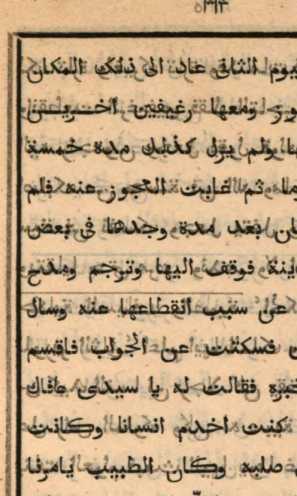 ٣١٣
يوم الثانى عاد الى ذلك المكان
ومعها رغيفين اخرين
ولم يزل كذلك مدة خمسة
ثم غابت العجوز عنه فلم
بعد مدة وجدها فى بعض
فوقف اليها وترجم ومدح
عن سبب انقطاعها عنه وسال
فسكتت عن الجواب فاقسم
فقالت له يا سيدى هاك
كنت اخدم انسانا وكانت
صلبه وكان الطبيب يامرنا